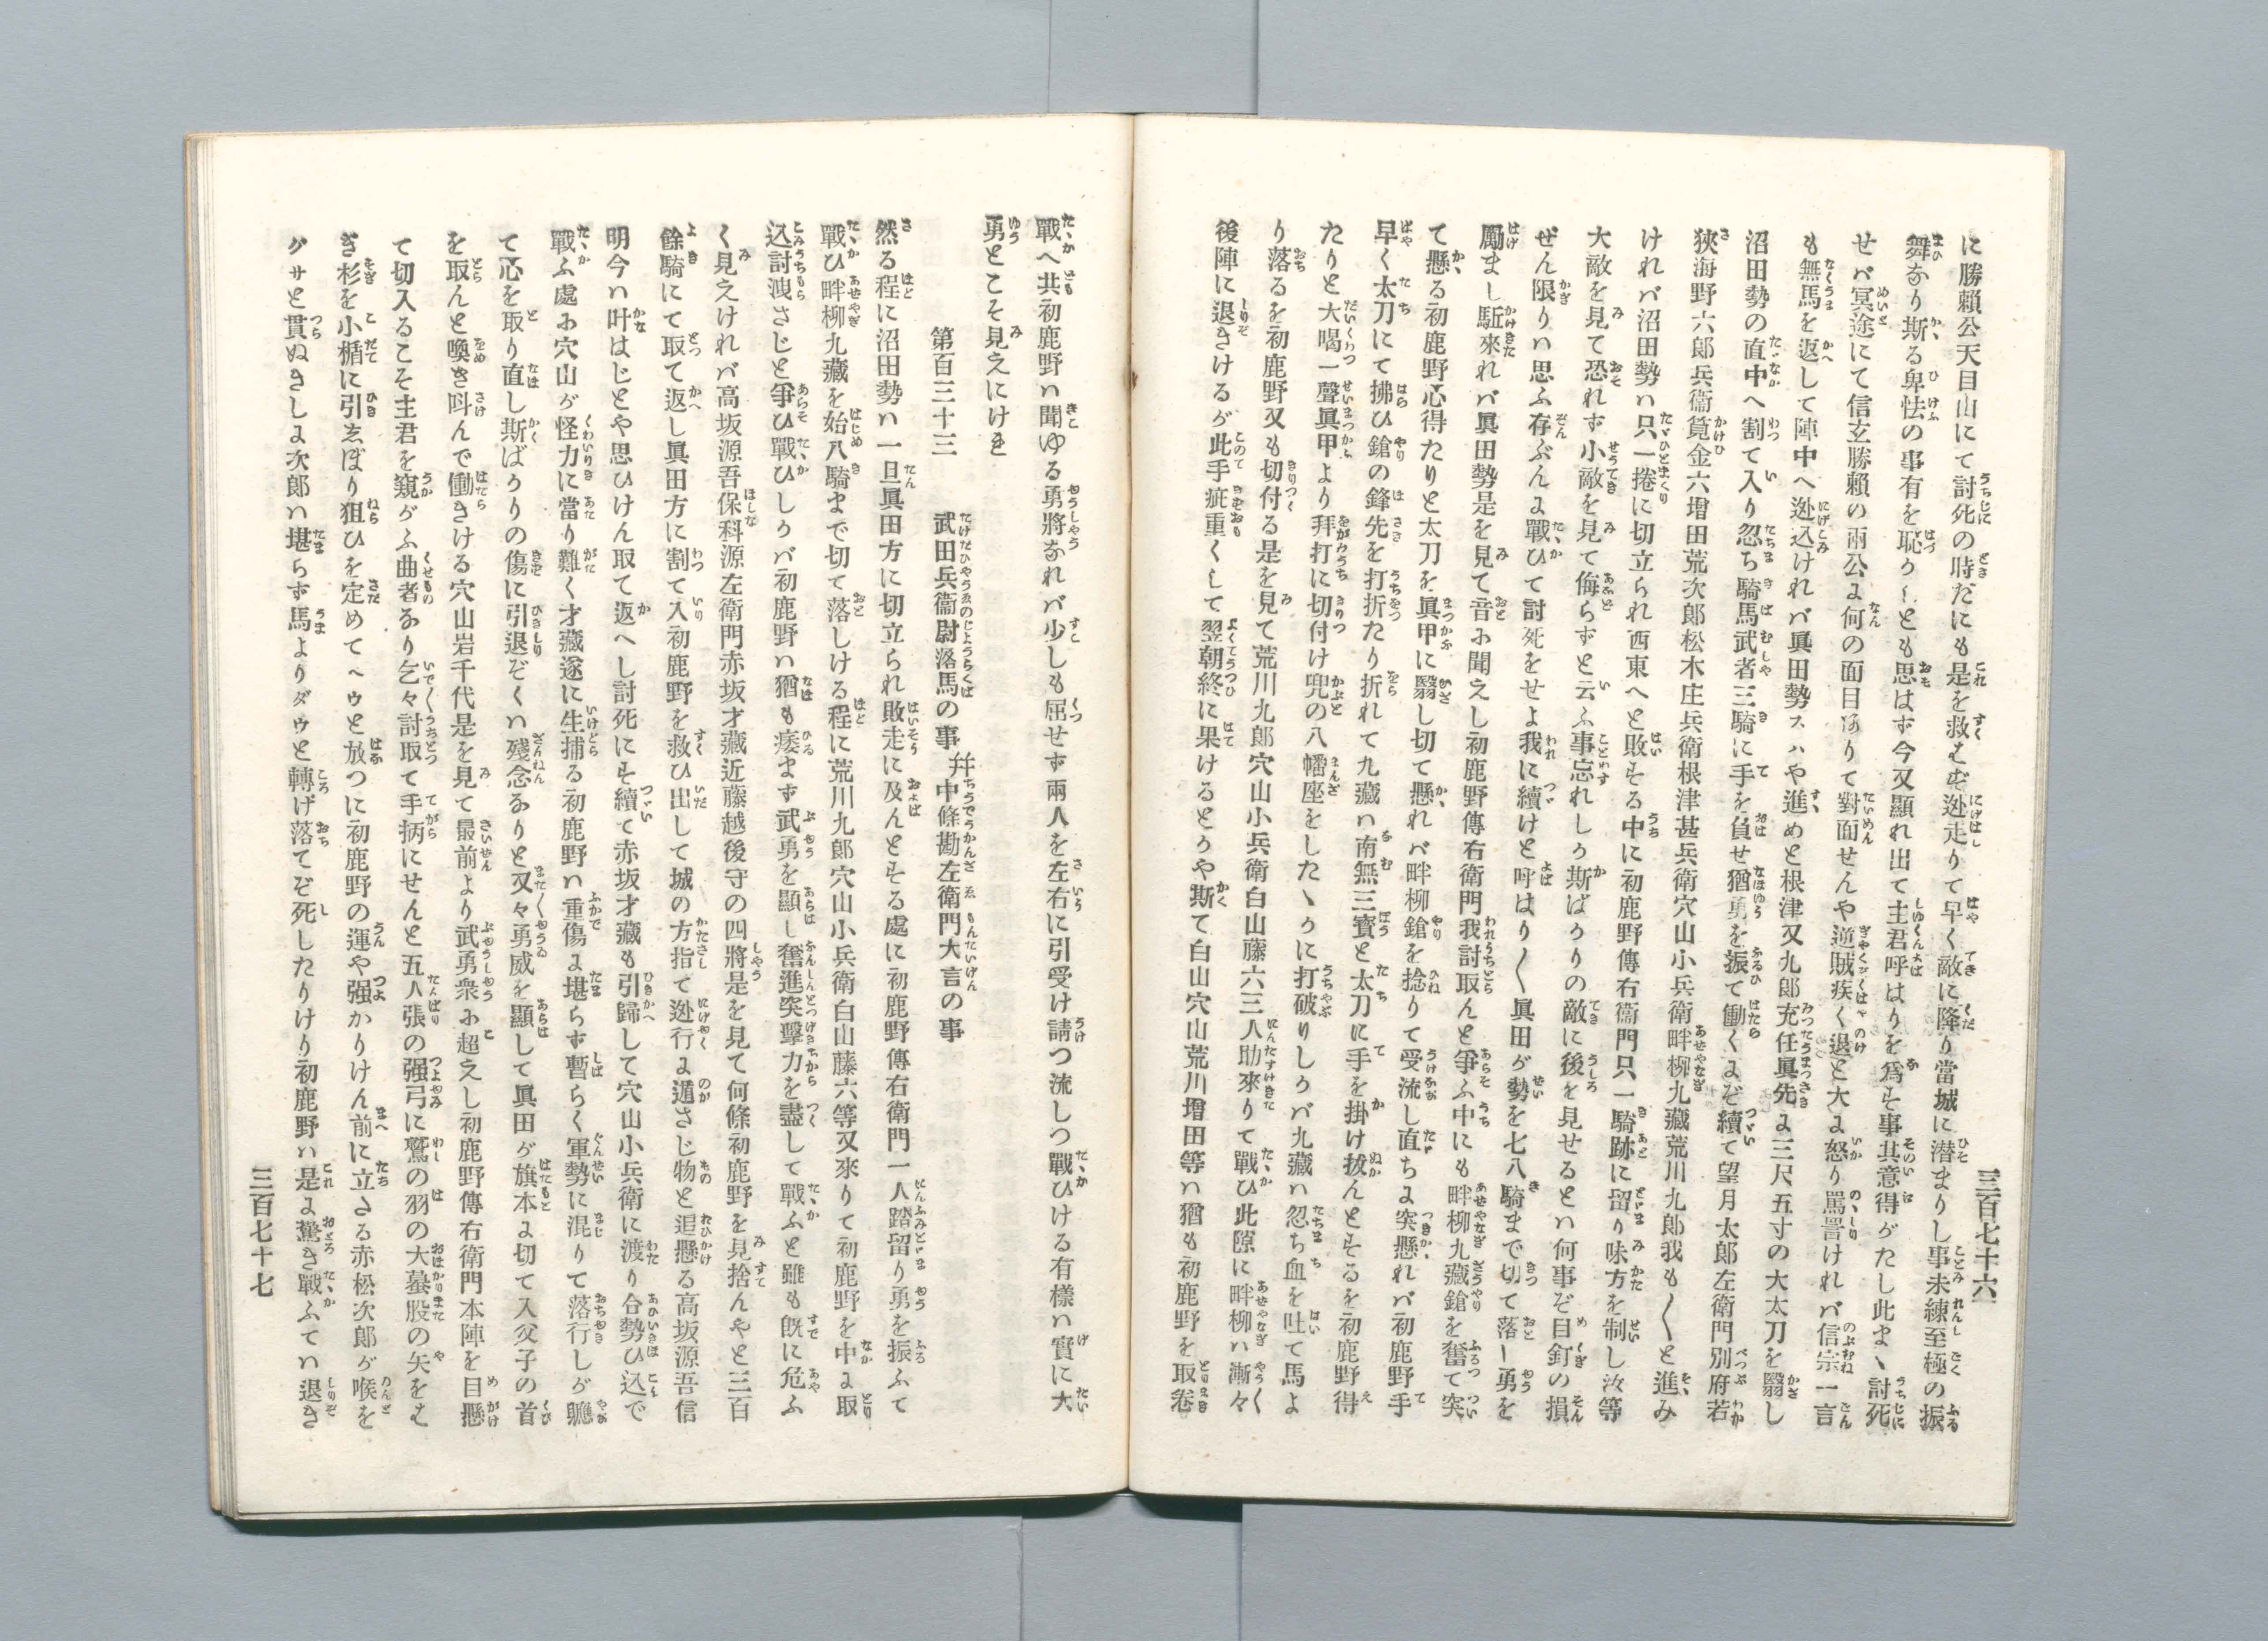 三百七十六
に勝賴公天目山にて討死の時だにも是を救はず迯走りて早く敵に降り當城に潜まりし事未練至極の振
舞なり斯る卑怯の事有を恥かしとも思はず今又顯れ出て主君呼はりを爲す事其意得がたし此まゝ討死
せバ冥途にて信玄勝賴の兩公に何の面目ありて對面せんや逆賊疾く退と大に怒り罵詈けれバ信宗一言
も無馬を返して陣中へ迯込けれバ眞田勢スハや進めと根津又九郎充任眞先に三尺五寸の大太刀を翳し
沼田勢の直中へ割て入り忽ち騎馬武者三騎に手を負せ猶勇を振て働くにぞ續て望月太郎左衛門別府若
狹海野六郎兵衞筧金六增田荒次郎松木庄兵衛根津甚兵衛穴山小兵衛畔柳九藏荒川九郎我も〱と進み
けれバ沼田勢ハ只一捲に切立られ西東へと敗する中に初鹿野傳右衞門只一騎跡に留り味方を制し汝等
大敵を見て恐れず小敵を見て侮らずと云ふ事忘れしか斯ばかりの敵に後を見せるとハ何事ぞ目釘の損
ぜん限りハ思ふ存ぶんに戰ひて討死をせよ我に續けと呼はり〱眞田が勢を七八騎まで切て落し勇を
勵まし駈來れバ眞田勢是を見て音に聞えし初鹿野傳右衛門我討取んと爭ふ中にも畔柳九藏鎗を奮て突
て懸る初鹿野心得たりと太刀を眞甲に翳し切て懸れバ畔柳鎗を捻りて受流し直ちに突懸れバ初鹿野手
早く太刀にて拂ひ鎗の鋒先を打折たり折れて九藏ハ南無三寳と太刀に手を掛け拔んとするを初鹿野得
たりと大喝一聲眞甲より拜打に切付け兜の八幡座をしたゝかに打破りしかバ九藏ハ忽ち血を吐て馬よ
り落るを初鹿野又も切付る是を見て荒川九郎穴山小兵衛白山藤六三人助來りて戰ひ此隙に畔柳ハ漸々
後陣に退きけるが此手疵重くして翌朝終に果けるとかや斯て白山穴山荒川增田等ハ猶も初鹿野を取卷
戰へ共初鹿野ハ聞ゆる勇將なれバ少しも屈せず兩人を左右に引受け請つ流しつ戰ひける有樣ハ實に大
勇とこそ見えにけれ
第百三十三　武田兵衞尉落馬の事　幷中條勘左衛門大言の事
然る程に沼田勢ハ一旦眞田方に切立られ敗走に及んとする處に初鹿野傳右衛門一人踏留り勇を振ふて
戰ひ畔柳九藏を始八騎まで切て落しける程に荒川九郎穴山小兵衛白山藤六等又來りて初鹿野を中に取
込討洩さじと爭ひ戰ひしかバ初鹿野ハ猶も痿まず武勇を顯し奮進突擊力を盡して戰ふと雖も旣に危ふ
く見えけれバ高坂源吾保科源左衛門赤坂才藏近藤越後守の四將是を見て何條初鹿野を見捨んやと三百
餘騎にて取て返し眞田方に割て入初鹿野を救ひ出して城の方指て迯行に遁さじ物と追懸る高坂源吾信
明今ハ叶はじとや思ひけん取て返へし討死にす續て赤坂才藏も引歸して穴山小兵衛に渡り合勢ひ込で
戰ふ處に穴山が怪力に當り難く才藏遂に生捕る初鹿野ハ重傷に堪らず暫らく軍勢に混りて落行しが軈
て心を取り直し斯ばかりの傷に引退ぞくハ殘念なりと又々勇威を顯して眞田が旗本に切て入父子の首
を取んと喚き叫んで働きける穴山岩千代是を見て最前より武勇衆に超えし初鹿野傳右衛門本陣を目懸
て切入るこそ主君を窺がふ曲者なり乞々討取て手柄にせんと五人張の强弓に鷲の羽の大蟇股の矢をは
ぎ杉を小楯に引ゑぼり狙ひを定めてヘウと放つに初鹿野の運や强かりけん前に立さる赤松次郎が喉を
グサと貫ぬきしに次郎ハ堪らず馬よりダウと轉げ落てぞ死したりけり初鹿野ハ是に驚き戰ふてハ退き
三百七十七